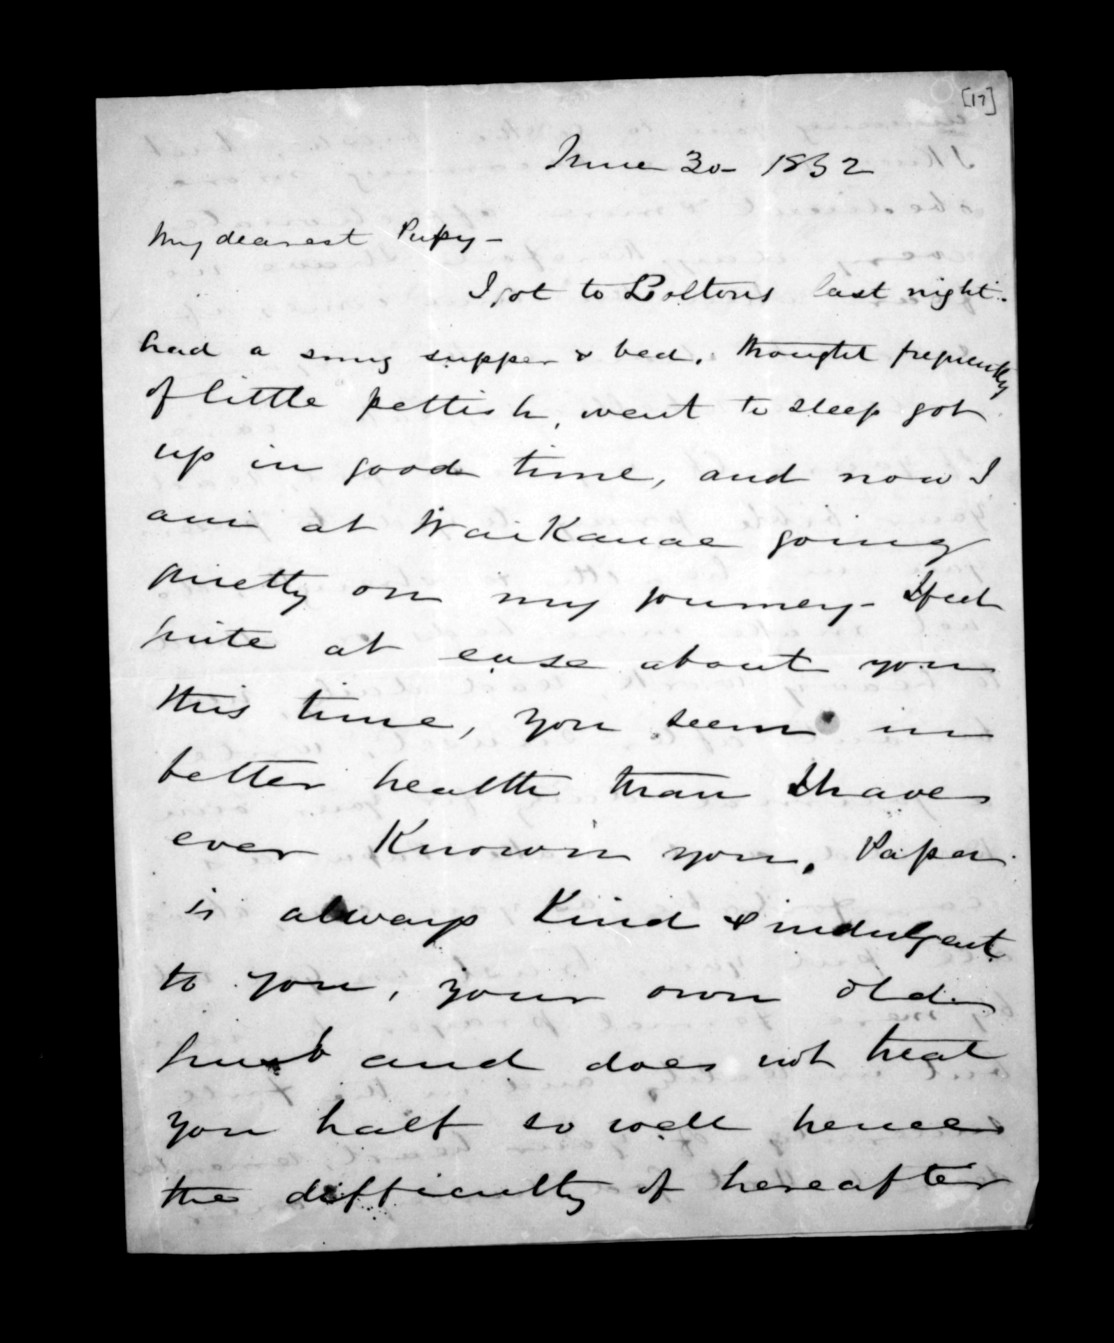 [17]
June 30 - 1852
My dearest Pussy -
I got to Boltons last night.
had a snug supper & bed. thought frequently
of little pettish, went to sleep got
up in good time, and now I
am at WaiKanae going
quietly on my journey - I feel
quite at ease about you
this time, you seem in
better health than I have
ever Known you. Papa
is always Kind & indulgent
to you, your own old
husband does not treat
you half so well hence
the difficulty of hereafter